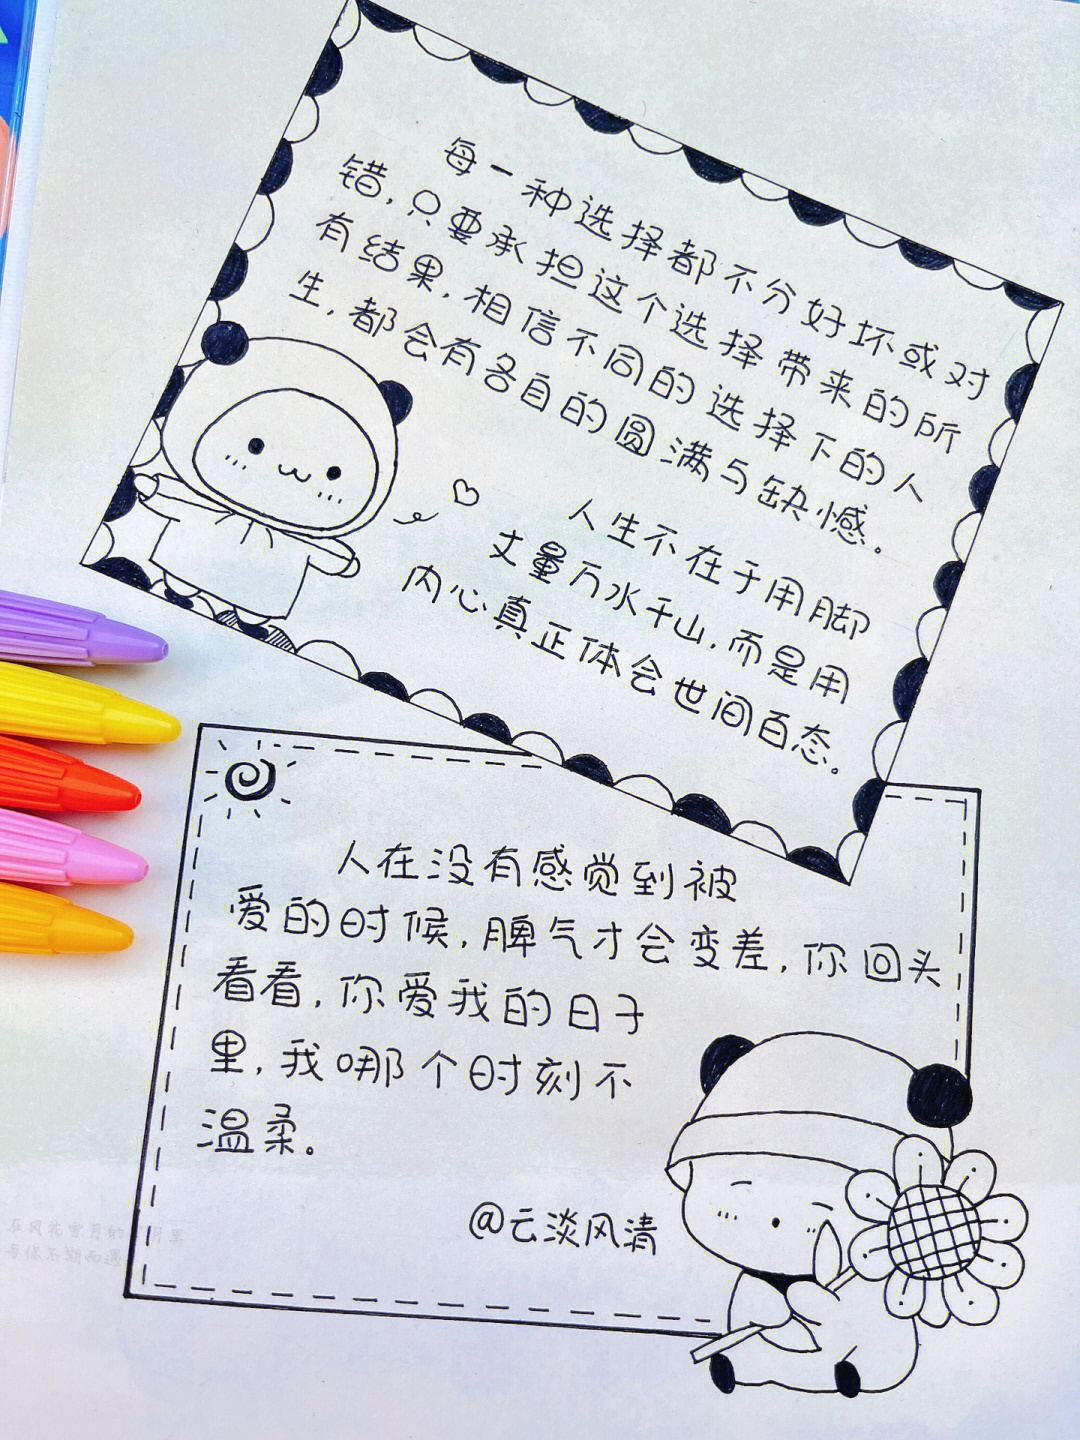 每一种选择都不分好坏或对
错,只要承担这个选择带来的所
有结果,相信不同的选择下的人
生,都会有各自的圆满与缺憾。
人生不在于用脚
丈量万水千山,而是用
内心真正体会世间百态。
人在没有感觉到被
爱的时候,脾气才会变差,你回头
看看,你爱我的日子
里,我哪个时刻不
温柔。
@云淡风清